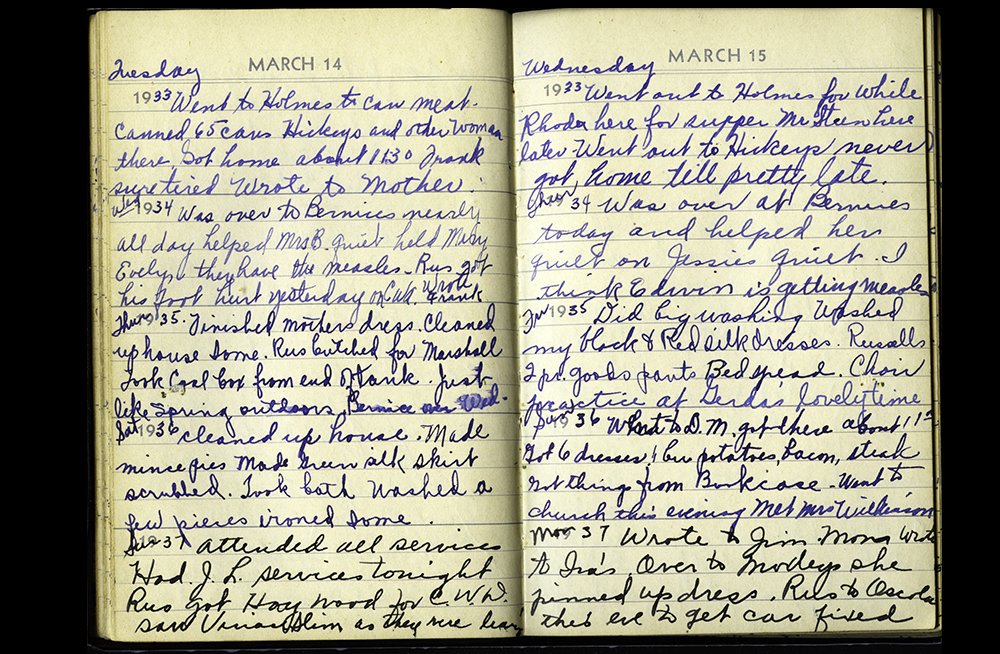 Tuesday
MARCH 14
1933 Went to Holmes to can meat.
Canned 65 cans Hickeys and other woman
there. Got home about 11:30 Frank
sure tired Wrote to Mother.
Wed 1934 Was over to Bernices nearly
all day helped Mrs B. quiet held Mary
Evelyn they have the measles. Rus got
his foot hurt yesterday on Cat. Wrote Frank
Thur 1935. Finished mothers dress. Cleaned
up house some. Rus butched for Marshall
Took Coal box from end of tank. Just
like Spring outdoors. Bernice over Wed.
Sat 1936 cleaned up house. Made
mince pies Made Green silk skirt
scrubbed. Took bath Washed a
few pieces ironed some.
Sun 1937 attended all services
Had J. L. services tonight
Rus got Hay wood for C. W. W.
saw Slim as they were
Wednesday
MARCH 15
1933 Went out to Holmes for while
Rhoda here for supper Mr Steen here
later Went out to Hickeys never
got home till pretty late.
Thur 34 Was over at Bernices
today and helped her
quiet on Jessies quiet. I
think Edwin is getting measles
Fri 1935 Did big washing Washed
my black & Red silk dresses. Russells
2 pr. goods pants Bed spead. Choir
practice at Gerdas lovely time
Sun 1936 Went to D. M. got there about 11
Got 6 dresses, 1 bu potatoes, bacon, steak
Got things from Bookcase. Went to
church this evening Met Mrs Wilkinson
Mon 37 Wrote to Jim Mong wrote
to Ira's. Over to Modeys she
pinned up dress. Rus to Osceola
this eve to get car fixed